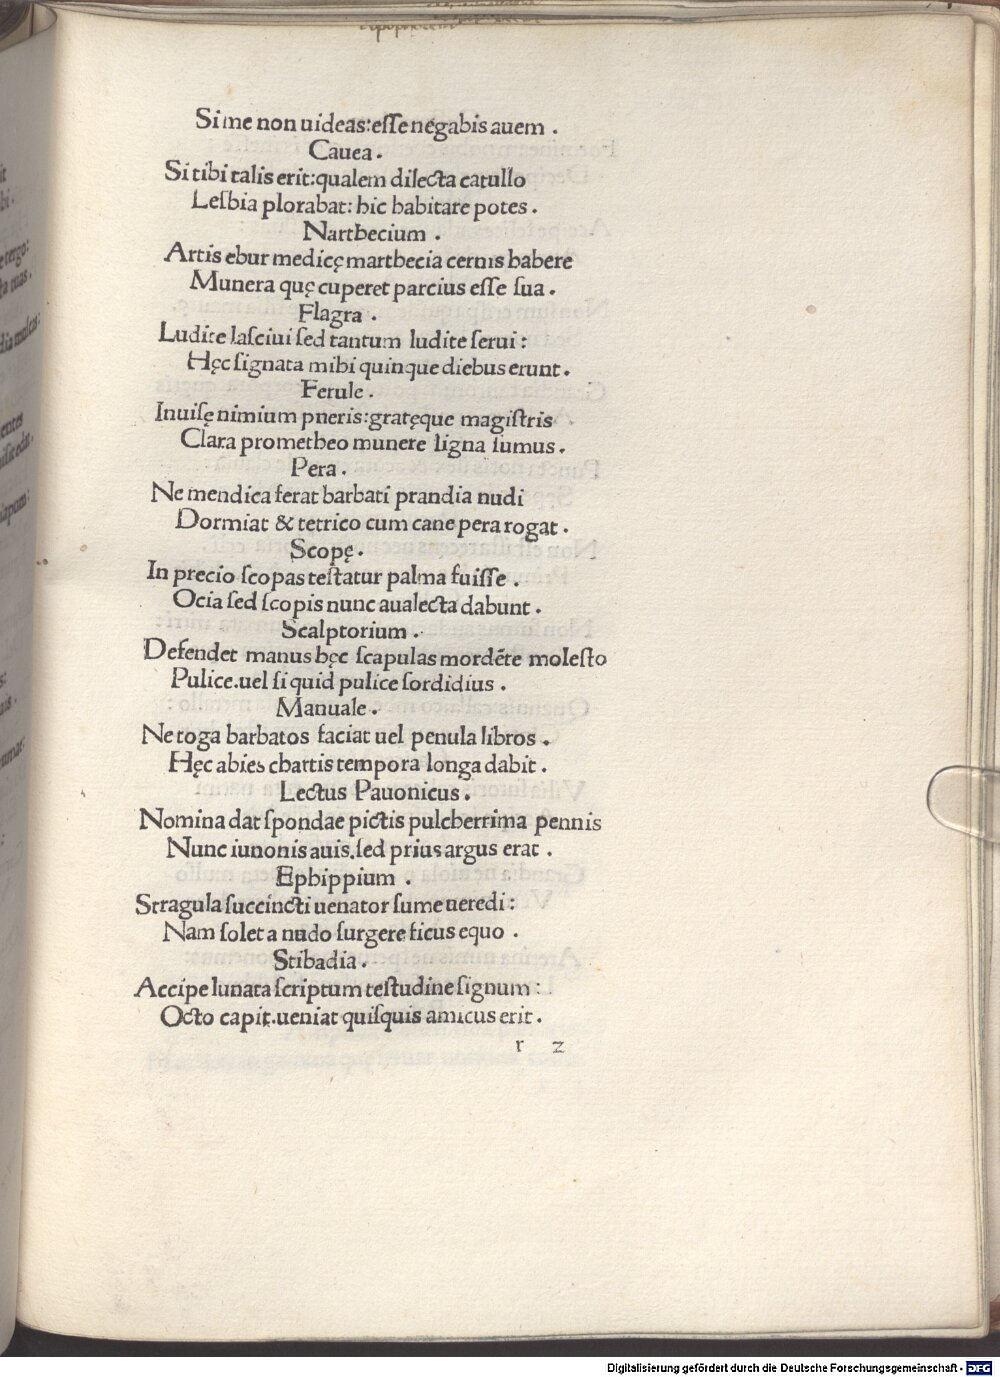 Si me non uideas:esſe negabis auem .
Cauea .
Si tibi talis erit:qualem dilecta catullo
Leſbia plorabat: hic habitare potes .
Narthecium .
Artis ebur medicę marthecia cernis habere
Munera quę cuperet parcius esſe ſua .
Flagra .
Ludite laſciui ſed tantum ludite ſerui :
Hęc ſignata mihi quinque diebus erunt .
Ferule .
Inuiſę nimium pneris:gratęque magiſtris
Clara prometheo munere ligna ſumus .
Pera .
Ne mendica ferat barbati prandia nudi
Dormiat & tetrico cum cane pera rogat .
Scopę .
In precio ſcopas teſtatur palma fuisſe .
Ocia ſed ſcopis nunc aualecta dabunt .
Scalptorium .
Defendet manus hęc ſcapulas mordẽte moleſto
Pulice.uel ſi quid pulice ſordidius .
Manuale .
Ne toga barbatos faciat uel penula libros .
Hęc abies chartis tempora longa dabit .
Lectus Pauonicus .
Nomina dat ſpondae pictis pulcherrima pennis
Nunc iunonis auis.ſed prius argus erat .
Ephippium .
Stragula ſuccincti uenator ſume ueredi :
Nam ſolet a nudo ſurgere ficus equo .
Stibadia .
Accipe lunata ſcriptum teſtudine ſignum :
Octo capit.ueniat quiſquis amicus erit .
r z
Digitalisierung gefördert durch die Deutsche Forschungsgemeinschaft - DFG